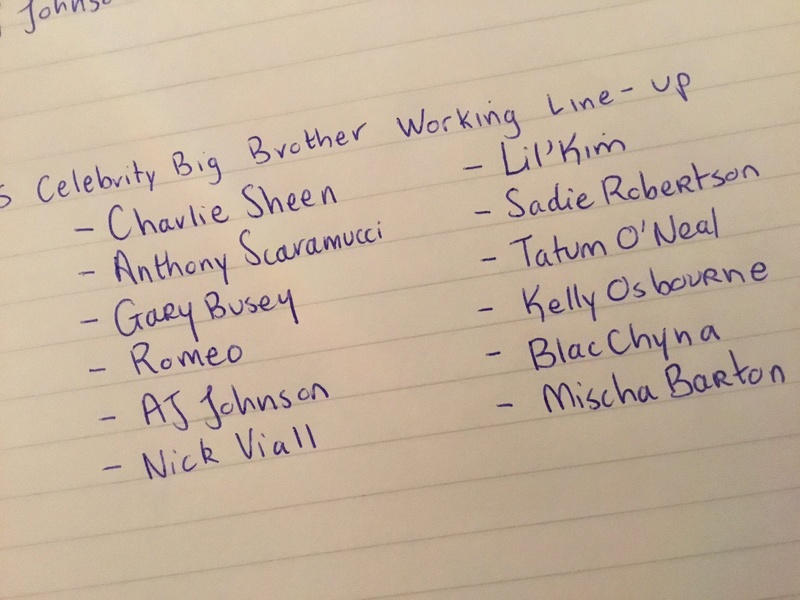 Johnso
S Celebrity Big Brother Working Line-up
- Charlie Sheen
- Anthony Scaramucci
- Gary Busey
- Romeo
- AJ Johnson
- Nick Viall
- Lil'Kim
- Sadie Robertson
- Tatum O'Neal
- Kelly Osbourne
- Blac Chyna
- Mischa Barton